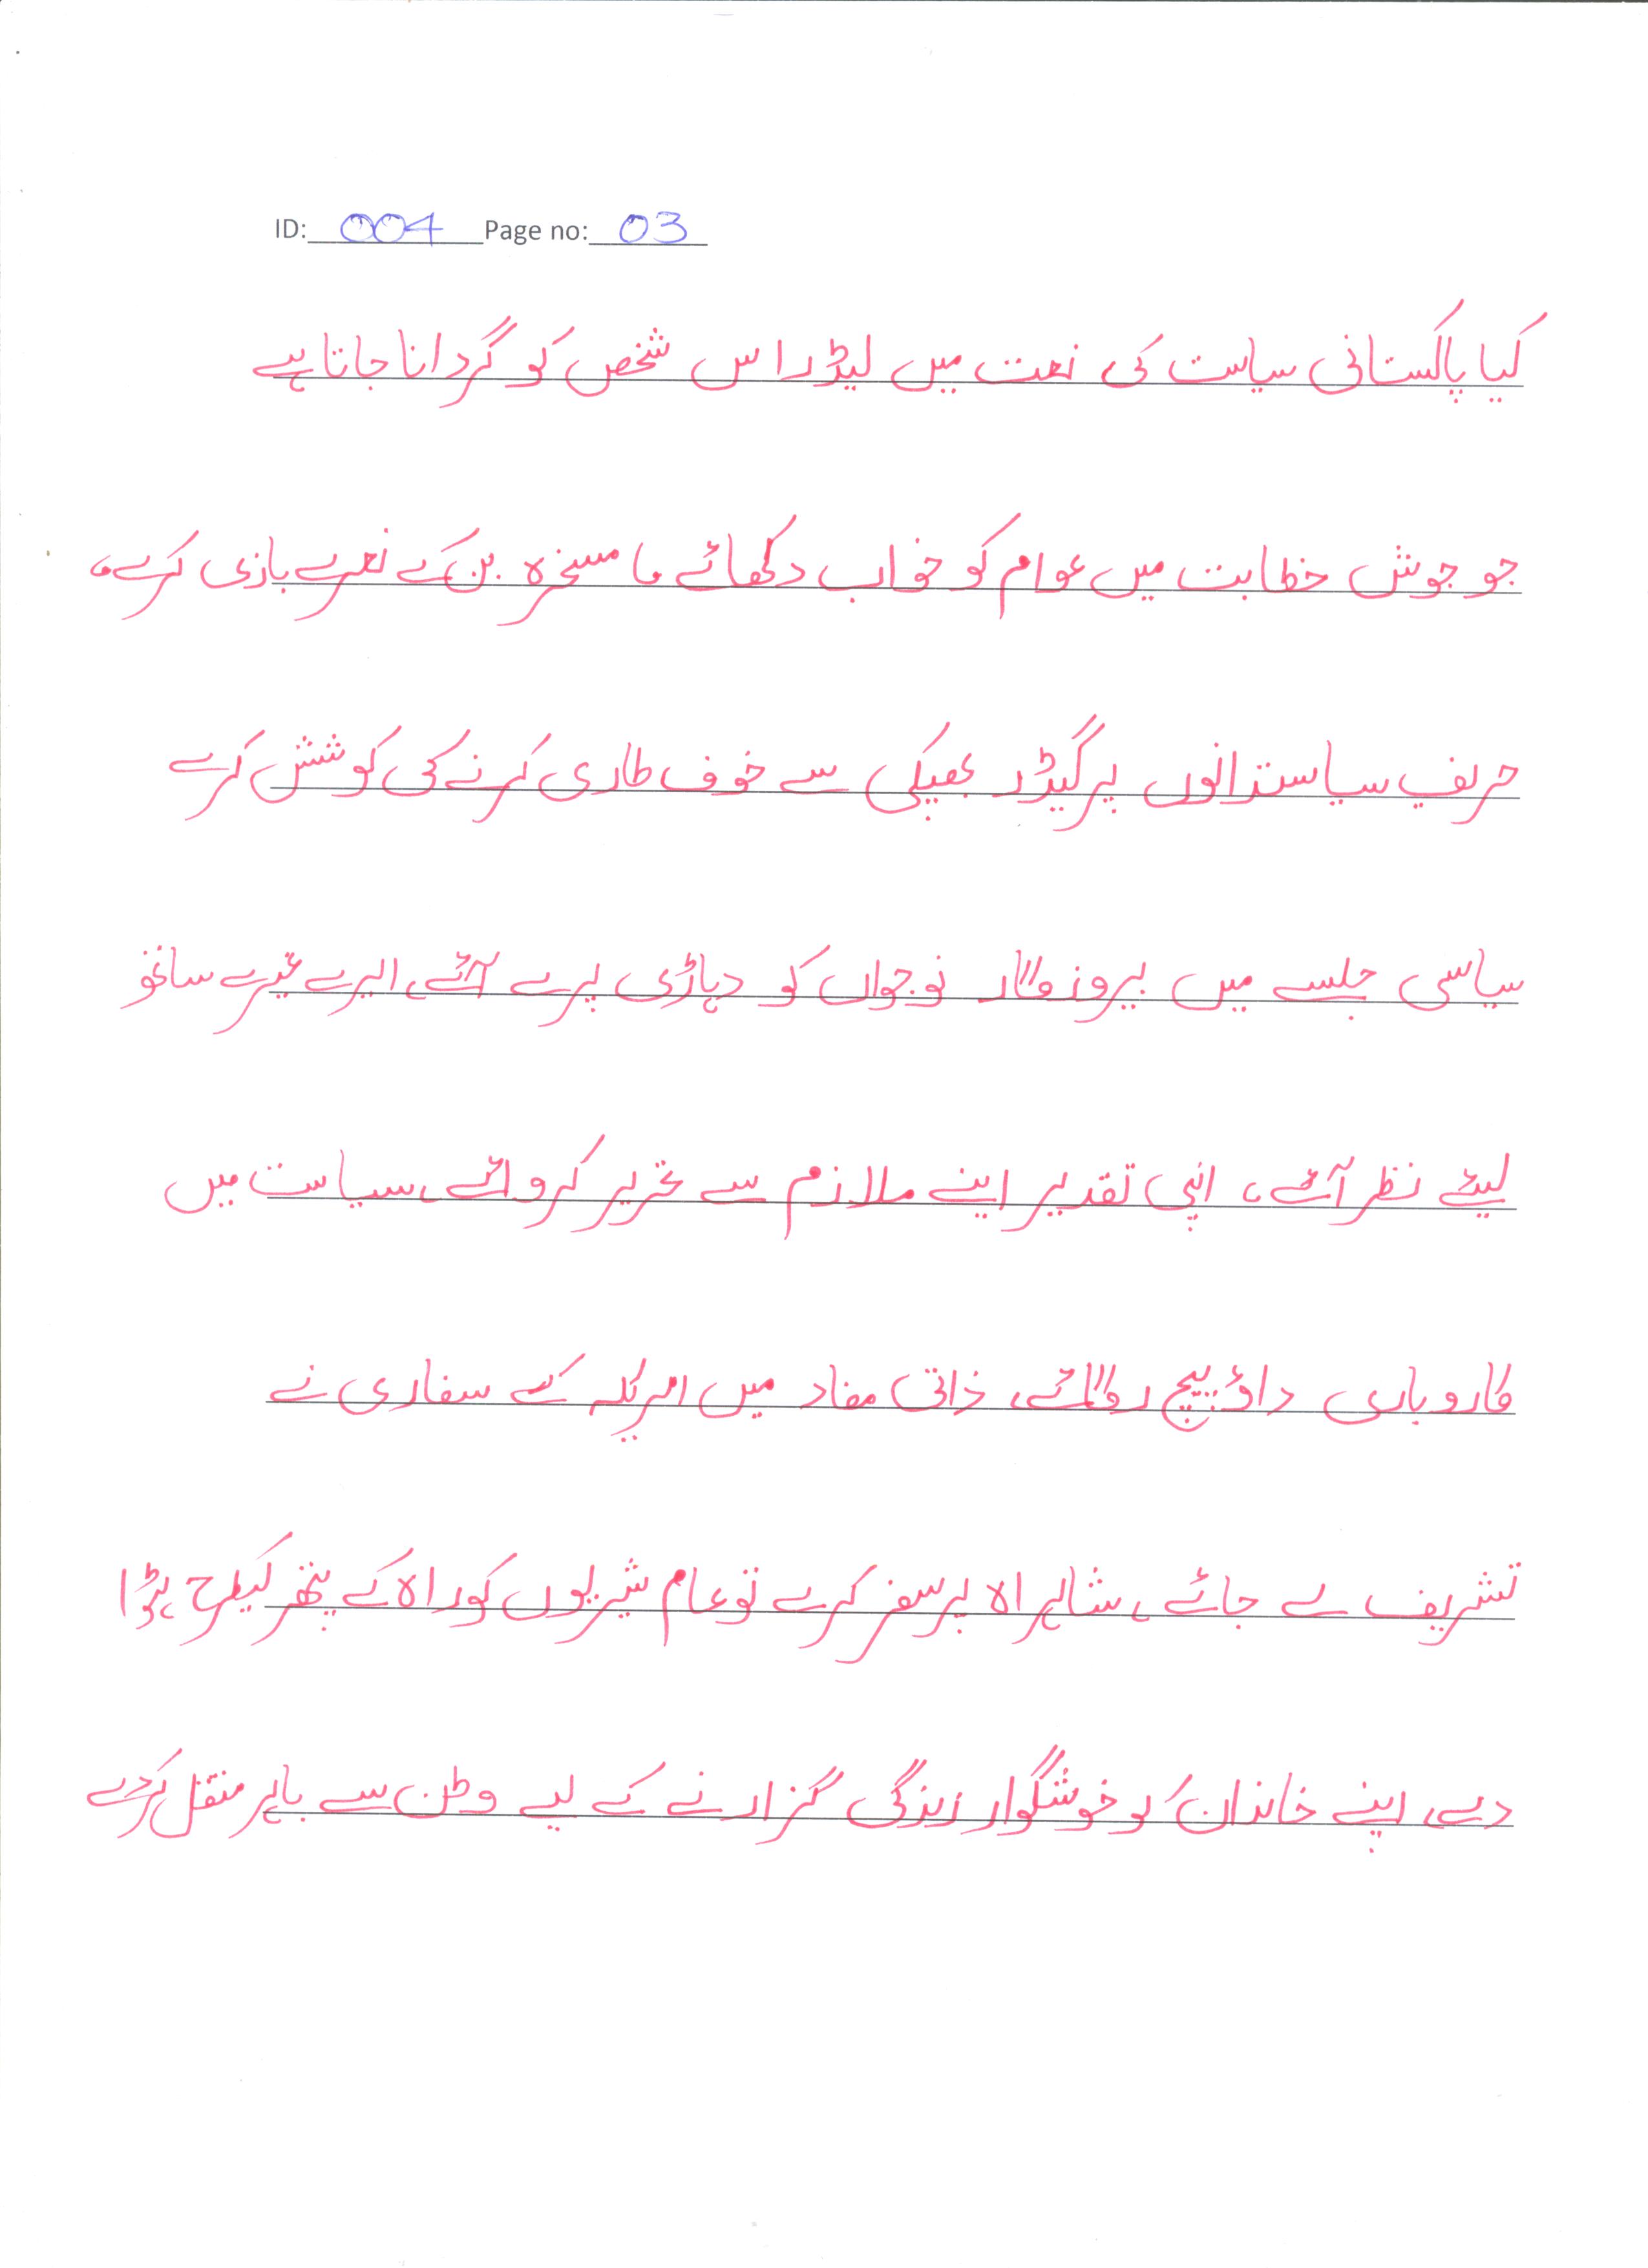 ID: 004 Page no: 03
کیا پاکستانی سیاست کی نعت میں لیڈر اس شخص کو گردانا جاتا ہے
جو جوش خطابت میں عوام کو خواب دکھائے، مسخرہ بن کے نعرے بازی کرے،
حریف سیاستدانوں پر گیڈر بھبکی سے خوف طاری کرنے کی کوشش کرے
سیاسی جلسے میں بیروزگار نوجواں کو دہاڑی پرلے آئے، ایرے غیرے ساتھ
لیئے نظر آئے، اپنی تقدیر اپنے ملازم سے تحریر کروائے، سیاست میں
کاروباری داؤ پیچ لگائے، ذاتی مفاد میں امریکہ کے سفاری نے
تشریف لے جائے، شاہراہ پر سفر کرے تو عام شہریوں کو راہ کے پتھر کیطرح ہٹوا
دے، اپنے خاندان کو خوشگوار زندگی گزارنے کے لیے وطن سے باہر منتقل کردے